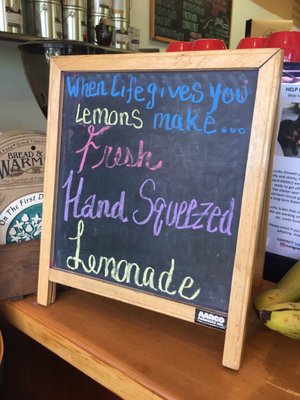 When Life gives you
Lemons make...
Fresh
Hand Squeezed
Lemonade
AARCO
BREAD &
WARM
On The First D
HELP